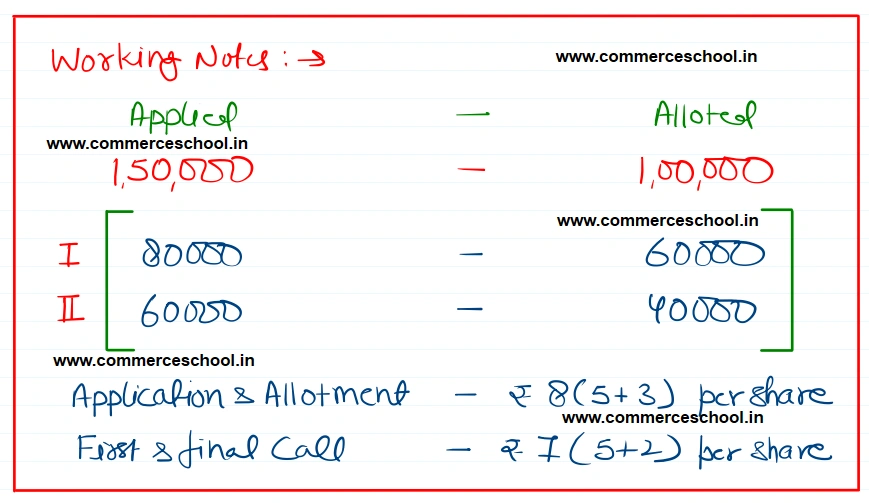 Working Notes : → www.commerceschool.in
Applied — Alloted
www.commerceschool.in
1,50,000 — 1,00,000
www.commerceschool.in
I 80000 — 60000
II 60000 — 40000
www.commerceschool.in
Application & Allotment — ₹ 8 (5+3) per share
www.commerceschool.in
First & final Call — ₹ 7 (5+2) per share